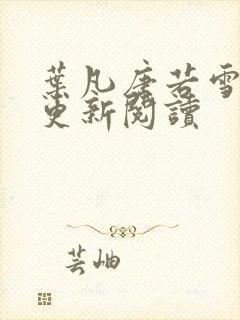 葉凡唐若雪
更新閱讀
芸岫